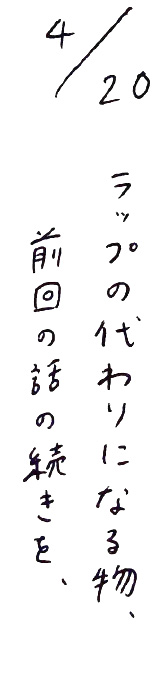 4/20
ラップの代わりになる物、
前回の話の続きを、